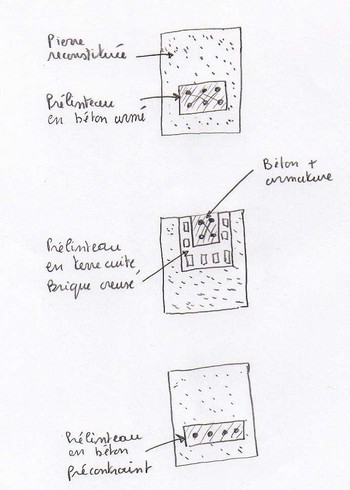 Pierre
reconstituée
Prélinteau
en béton armé
Béton +
armature
Prélinteau
en terre cuite,
Brique creuse
Prélinteau
en béton
précontraint